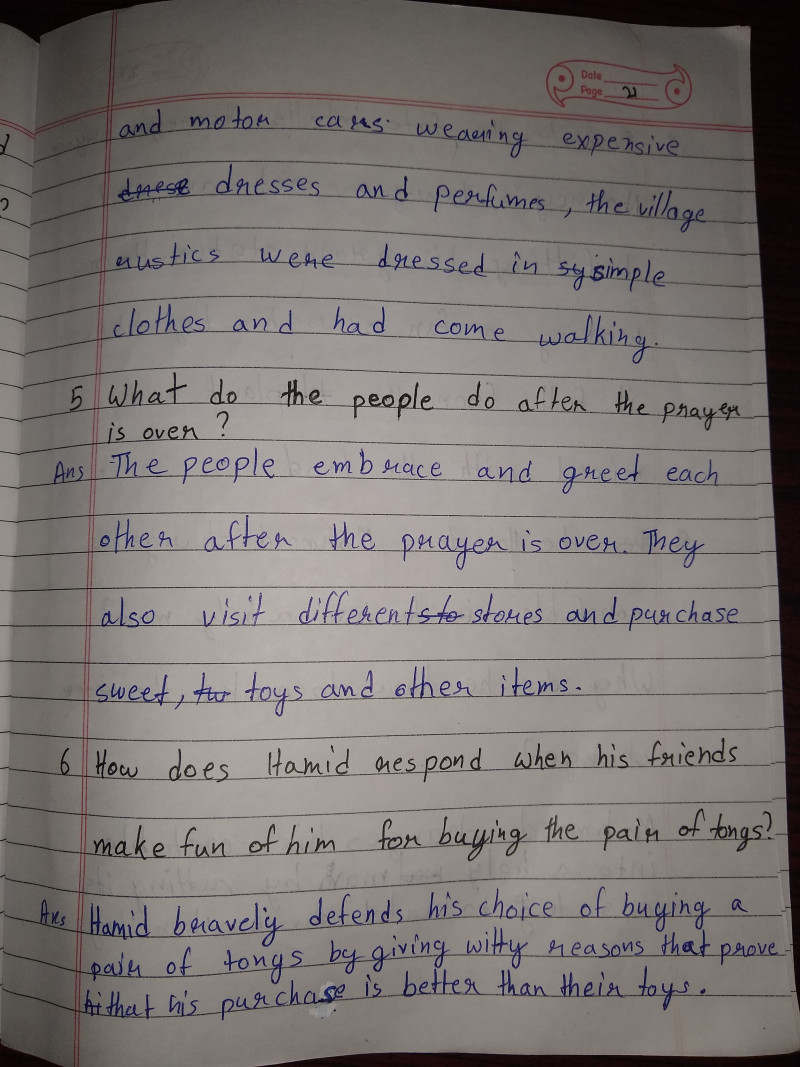 Date
Page 21
and motor cars. wearing expensive
drese dresses and perfumes, the village
rustics were dressed in sy simple
clothes and had come walking.
5 What do the people do after the prayer
is over?
Ans The people embrace and greet each
other after the prayer is over. They
also visit different sto stores and purchase
sweet, tw toys and other items.
6 How does Hamid respond when his friends
make fun of him for buying the pair of tongs?
Ans Hamid bravely defends his choice of buying a
pair of tongs by giving witty reasons that prove
that his purchase is better than their toys.